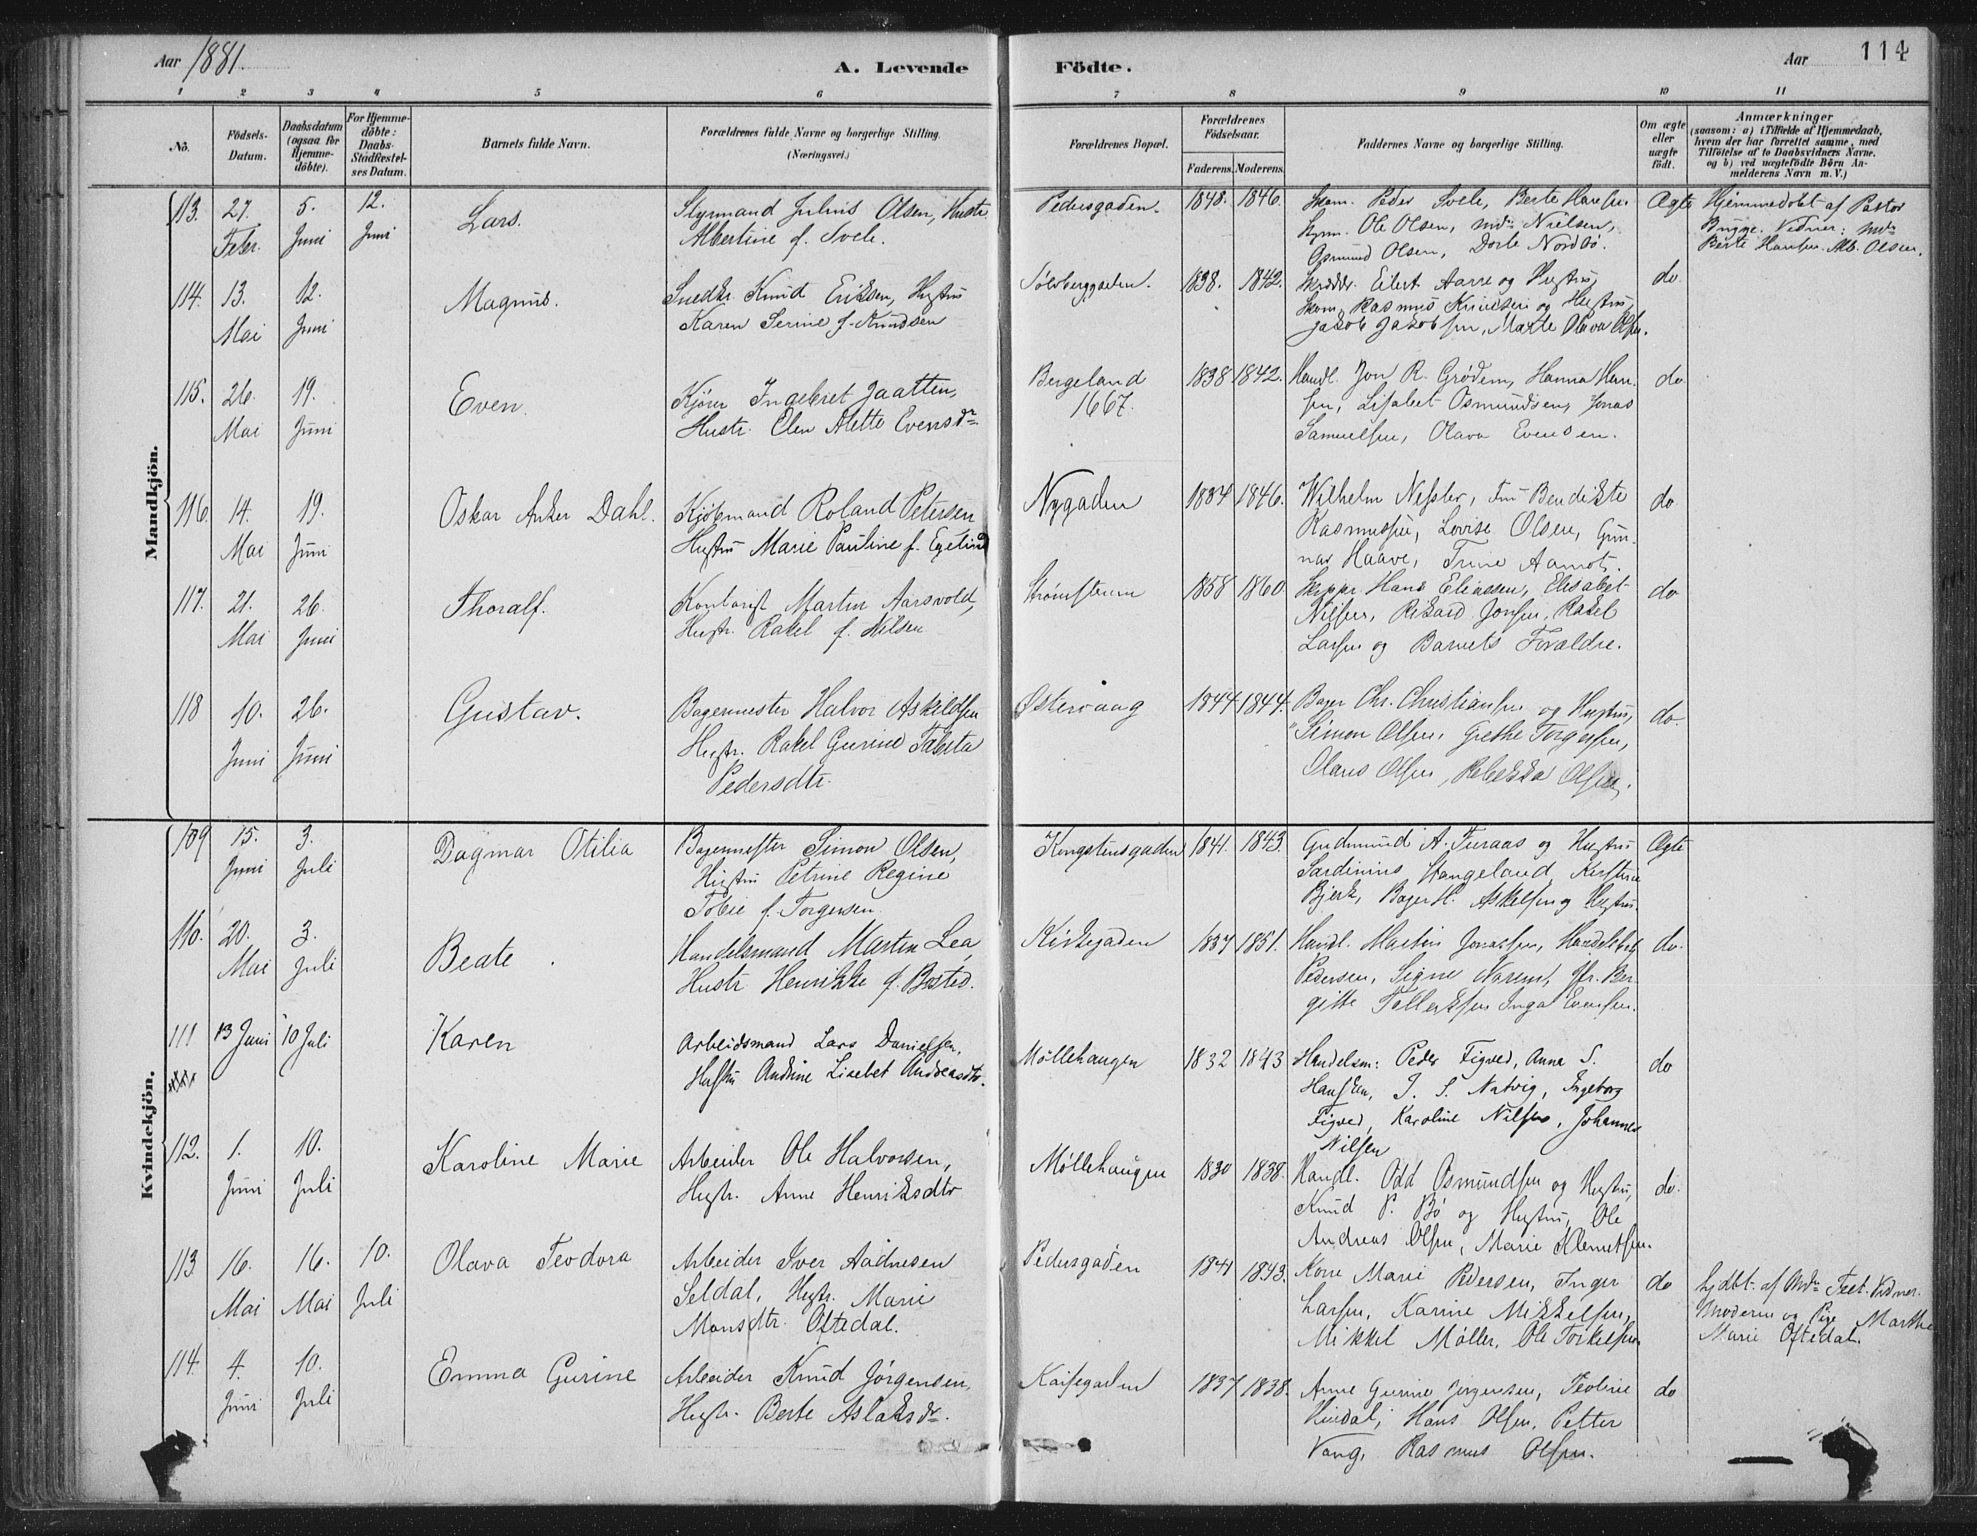 Aar 1881.
A. Levende Födte.
Aar
114
1 2 3 4 5 6 7 8 9 10 11
No.
Födsels-
Datum.
Daabsdatum
(ogsaa for
Hjemme-
döbte).
For Hjemme-
döbte:
Daabs-
Stadfæstel-
ses Datum.
Barnets fulde Navn.
Forældrenes fulde Navne og borgerlige Stilling.
(Næringsvei.)
Forældrenes Bopæl.
Forældrenes
Födselsaar.
Faderens. Moderens.
Faddernes Navne og borgerlige Stilling.
Om ægte
eller
uægte
födt.
Anmærkninger
(saasom: a) i Tilfælde af Hjemmedaab,
hvem der har forrettet samme, med
Tilföielse af to Daabsvidners Navne,
og b) ved uægtefödte Börn An-
melderens Navn m. V.)
Mandkjön.
113. 27. Febr. 5. Juni 12. Juni
Lars.
Styrmand Julius Olsen, Hustr
Albertine f. Svele.
Pedersgaden. 1848. 1846.
Skom. Peder Svele, Berte Hansen
Ole Olsen, Nielsen,
Osmund Olsen, Dorte Nordbø.
Ægte
Hjemmedøbt af Pastor
Bugge. Vidner:
Berte Hansen. Alb. Olsen.
114. 13. Mai 12. Juni
Magnus.
Snedkr. Knud Eriksen, Hustru
Karen Serine f. Knudsen
Sølvberggaden. 1838. 1842.
Skrædder Eilert Aarre og Hustru,
Skom. Rasmus Knudsen og Hustru,
Jakob Jakobsen, Marte Olava Olsen.
do.
115. 26. Mai 19. Juni
Even.
Kjører Ingebret Jaatten,
Hustr. Elen Alette Evensdr
Bergeland
1667.
1838 1842.
Handl. Jon R. Grødem, Hanna Han-
sen, Lisabet Osmundsen, Jonas
Samuelsen, Olava Evensen.
do
116. 14. Mai 19. Juni
Oskar Anker Dahl.
Kjøbmand Roland Petersen
Hustru Marie Pauline f. Egelund
Nygaden 1834 1846.
Wilhelm Nessler, Fru Bendikte
Rasmussen, Lovise Olsen, Gun-
nar Haave, Trine Aamot.
do
117. 21. Mai 26. Juni
Thoralf.
Kontorist Martin Aarsvold,
Hustr. Rakel f. Nilsen
Strømsteen 1858 1860
Skippr Hans Eliassen, Elisabet
Nilsen, Rikard Jonsen, Rakel
Larsen og Barnets Forældre.
do
118 10. Juni 26. Juni
Gustav.
Bagermester Halvor Askildsen
Hustr. Rakel Gurine Tabeta
Pedersdtr.
Østervaag 1844 1844.
Bager Chr. Christiansen og Hustru,
Simon Olsen, Grethe Torgersen,
Olaus Olsen, Rebekka Olsen.
do.
Kvindekjön.
109 15. Juni 3. Juli
Dagmar Otilia
Bagermester Simon Olsen,
Hustru Petrine Regine
Tobie f. Torgersen.
Kongstensgaden 1841. 1843.
Gudmund A. Furaas og Hustru
Sardinius Stangeland, Kirstine
Bjerk, Bager H. Askelsen og Hustru.
Ægte
110. 20. Mai 3. Juli
Beate
Handelsmand Martin Lea,
Hustr Henrikke f. Basted.
Kirkegaden 1837 1851.
Handl. Martin Jonassen, Handelsbet.
Pedersen, Signe Jfr. Ber-
gitte Tollerksen, Inga Evensen.
do.
111 13 Juni 10 Juli
Karen
Arbeidsmand Lars Danielsen,
Hustru Andrine Lisebet Andreasdtr.
Møllehaugen 1832 1843
Handelsm: Peder Figved, Anna S.
Hansen, J. S. Natvig, Ingeborg
Figved, Karoline Nilsen, Johannes
Nilsen
do
112. 1. Juni 10. Juli
Karoline Marie
Arbeider Ole Halvorsen,
Hustr. Anne Henriksdtr
Møllehaugen 1830 1838.
Handl. Odd Osmundsen og Hustru,
Knud P. Bø og Hustru, Ole
Andreas Olsen, Marie Klemetsen.
do.
113 16. Mai 16. Mai 10. Juli
Olava Teodora
Arbeider Iver Aadnesen
Seldal, Hustr. Marie
Monsdtr. Oftedal.
Pedersgaden 1841 1843.
Kone Marie Pedersen, Inger
Larsen, Karine Mikkelsen,
Mikkel Møller, Ole Torkelsen
do
hjdbt. af Feet. Vidner.
Moderen og Pige Marthe
Marie Oftedal.
114. 4. Juni 10. Juli
Emma Gurine
Arbeider Knud Jørgensen,
Hustr. Berte Aslaksdr.
Kaisegaden 1837 1838.
Anne Gurine Jørgensen, Teoline
Hans Olsen, Petter
Vang, Rasmus Olsen.
do